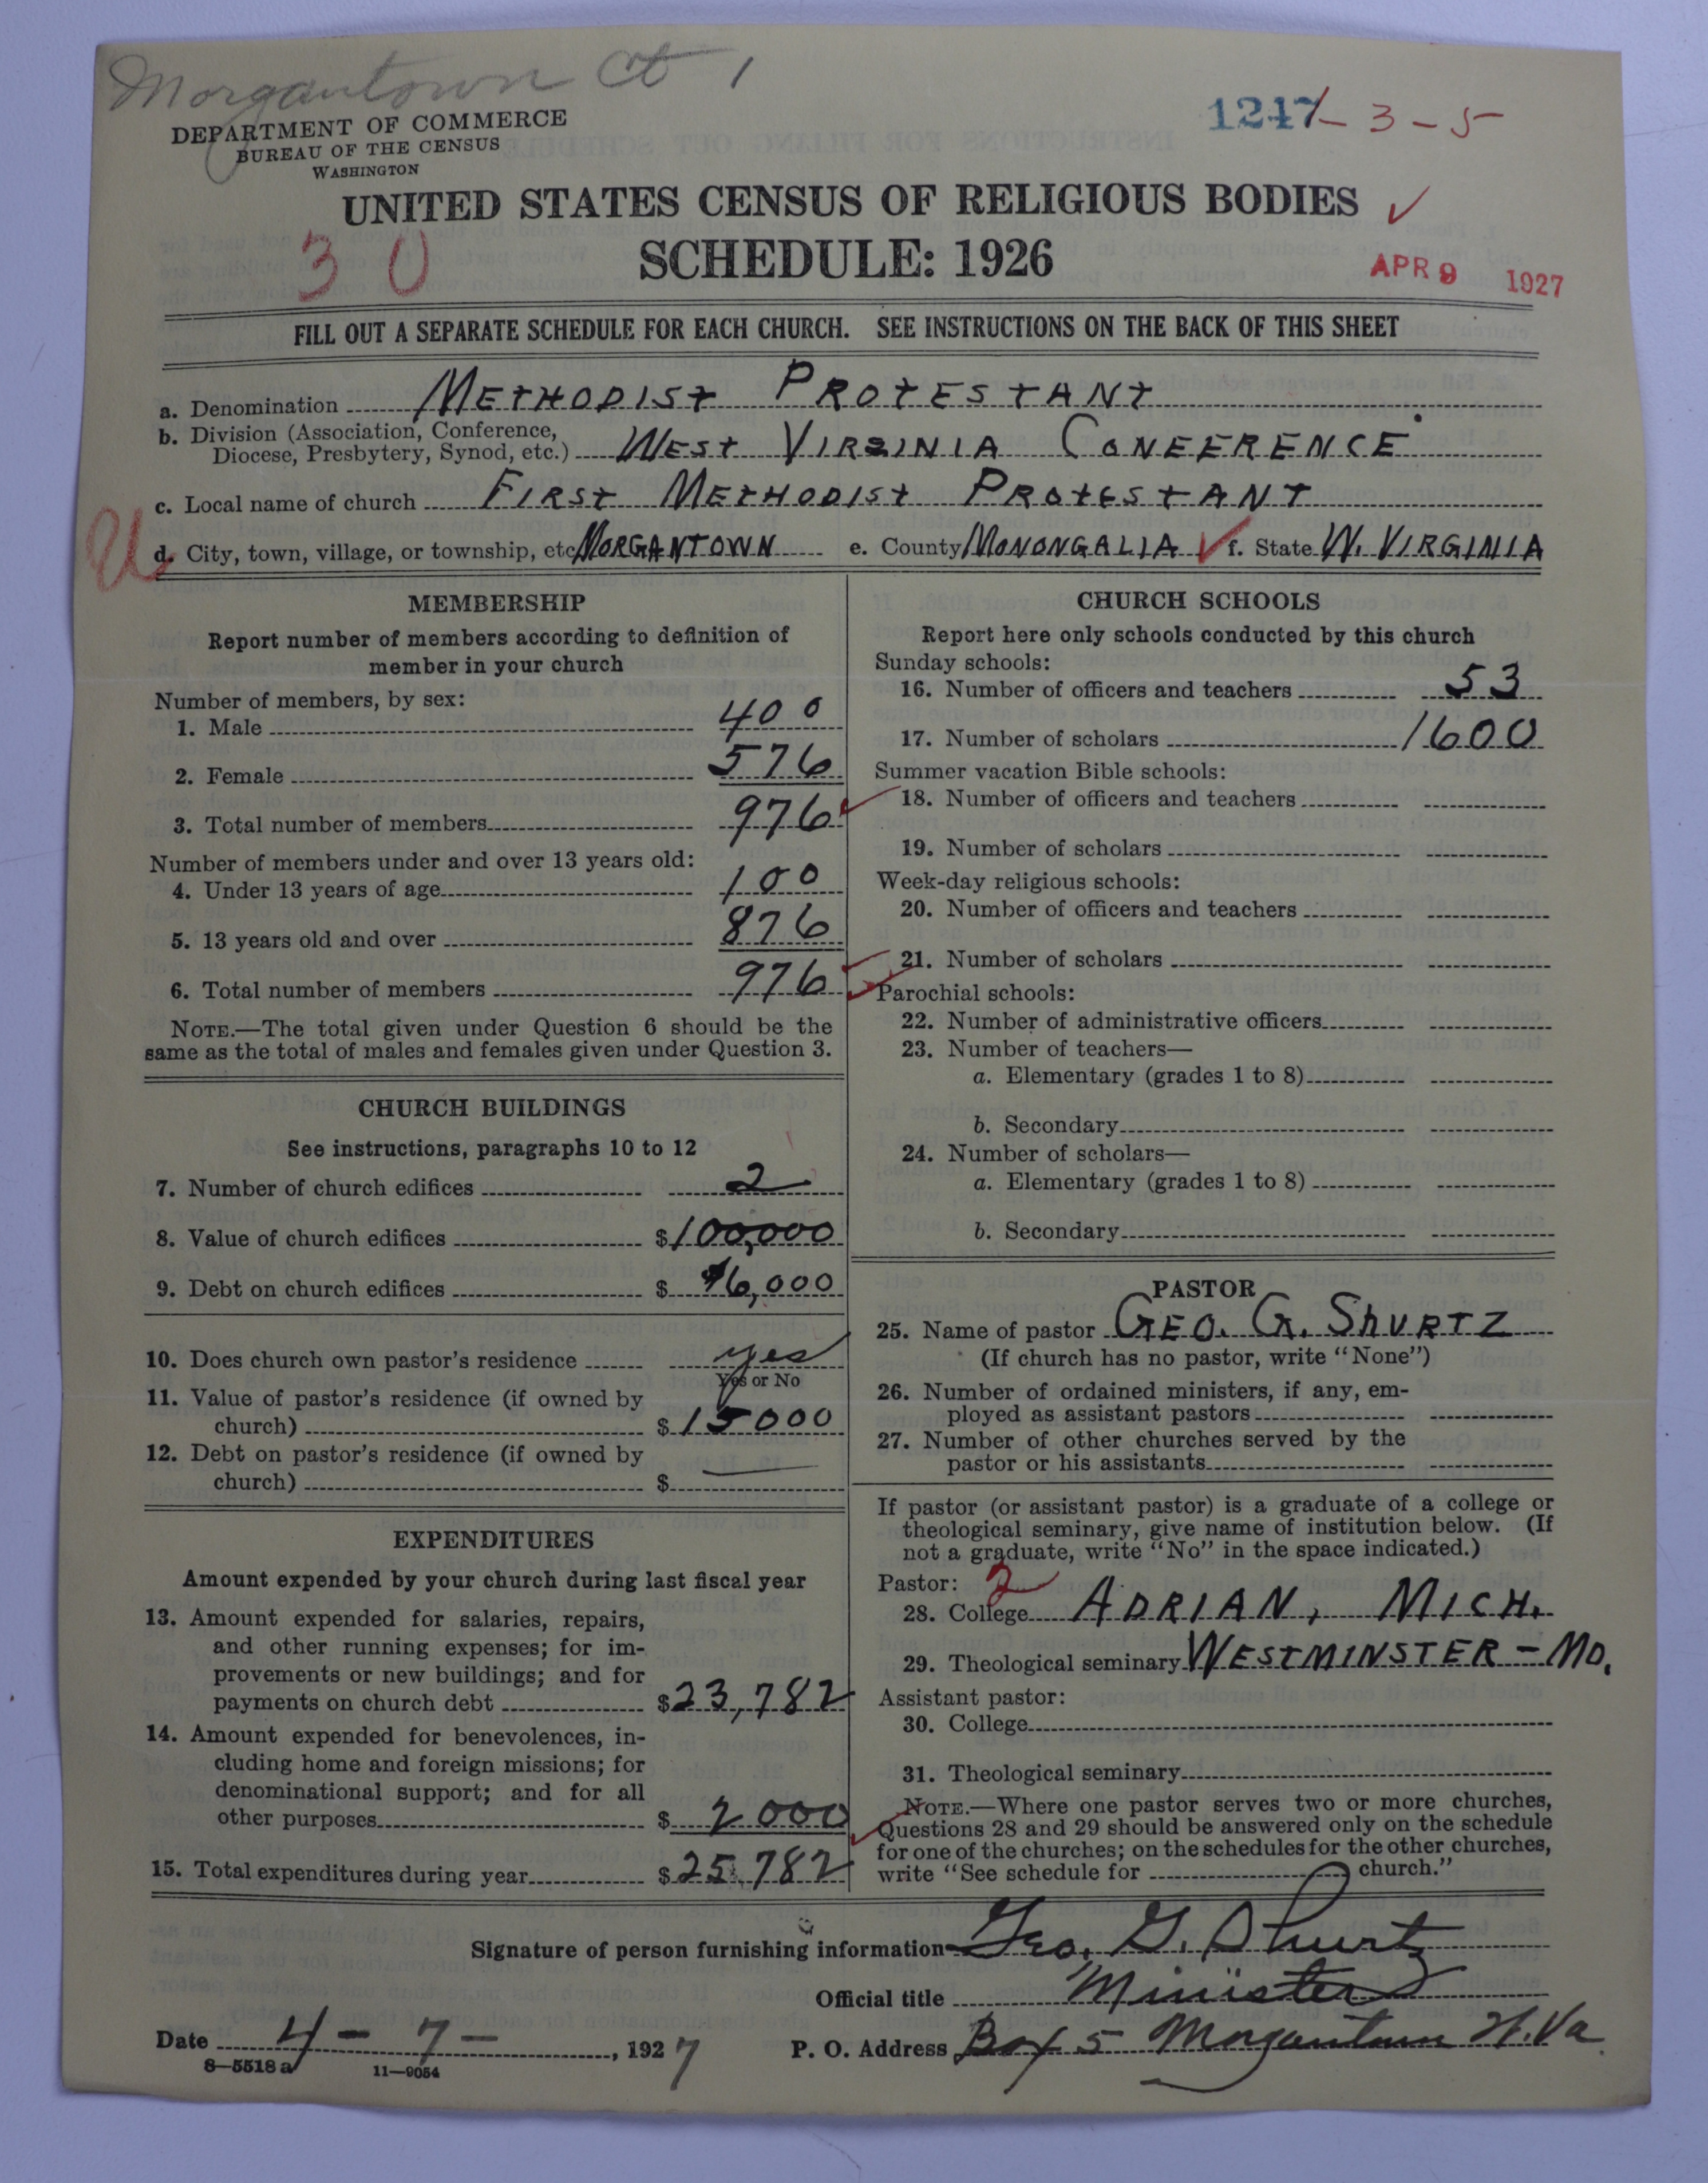 Morgantown Ct 1
DEPARTMENT OF COMMERCE
BUREAU OF THE CENSUS
WASHINGTON
1247-3-5
UNITED STATES CENSUS OF RELIGIOUS BODIES
30
SCHEDULE: 1926
APR 9 1927
FILL OUT A SEPARATE SCHEDULE FOR EACH CHURCH. SEE INSTRUCTIONS ON THE BACK OF THIS SHEET
a. Denomination METHODIST PROTESTANT
b. Division (Association, Conference,
Diocese, Presbytery, Synod, etc.) WEST VIRGINIA CONFERENCE
c. Local name of church FIRST METHODIST PROTESTANT
U
d. City, town, village, or township, etc. MORGANTOWN e. County MONONGALIA f. State W. VIRGINIA
MEMBERSHIP
Report number of members according to definition of
member in your church
Number of members, by sex:
1. Male 400
2. Female 576
3. Total number of members 976
Number of members under and over 13 years old:
4. Under 13 years of age 100
5. 13 years old and over 876
6. Total number of members 976
NOTE.—The total given under Question 6 should be the
same as the total of males and females given under Question 3.
CHURCH BUILDINGS
See instructions, paragraphs 10 to 12
7. Number of church edifices 2
8. Value of church edifices $100,000
9. Debt on church edifices $ 16,000
10. Does church own pastor's residence yes
Yes or No
11. Value of pastor's residence (if owned by
church) $15000
12. Debt on pastor's residence (if owned by
church) $ —
EXPENDITURES
Amount expended by your church during last fiscal year
13. Amount expended for salaries, repairs,
and other running expenses; for im-
provements or new buildings; and for
payments on church debt $23,782
14. Amount expended for benevolences, in-
cluding home and foreign missions; for
denominational support; and for all
other purposes $ 2000
15. Total expenditures during year $25,782
CHURCH SCHOOLS
Report here only schools conducted by this church
Sunday schools:
16. Number of officers and teachers 53
17. Number of scholars 1600
Summer vacation Bible schools:
18. Number of officers and teachers
19. Number of scholars
Week-day religious schools:
20. Number of officers and teachers
21. Number of scholars
Parochial schools:
22. Number of administrative officers
23. Number of teachers—
a. Elementary (grades 1 to 8)
b. Secondary
24. Number of scholars—
a. Elementary (grades 1 to 8)
b. Secondary
PASTOR
25. Name of pastor GEO. G. SHURTZ
(If church has no pastor, write "None")
26. Number of ordained ministers, if any, em-
ployed as assistant pastors
27. Number of other churches served by the
pastor or his assistants
If pastor (or assistant pastor) is a graduate of a college or
theological seminary, give name of institution below. (If
not a graduate, write "No" in the space indicated.)
Pastor: 2
28. College ADRIAN, MICH.
29. Theological seminary WESTMINSTER - MD.
Assistant pastor:
30. College
31. Theological seminary
NOTE.—Where one pastor serves two or more churches,
Questions 28 and 29 should be answered only on the schedule
for one of the churches; on the schedules for the other churches,
write "See schedule for church."
Signature of person furnishing information Geo. G. Shurtz
Official title Minister
Date 4 - 7 - , 1927 P. O. Address Box 5 Morgantown W. Va.
8—5518 a 11—9054